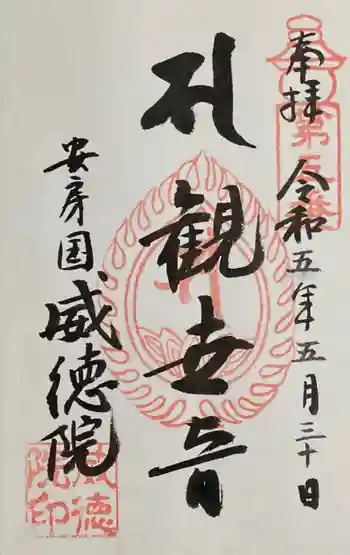 奉拝
令和五年五月三十日
観世音
安房国
威徳院
威徳
院印